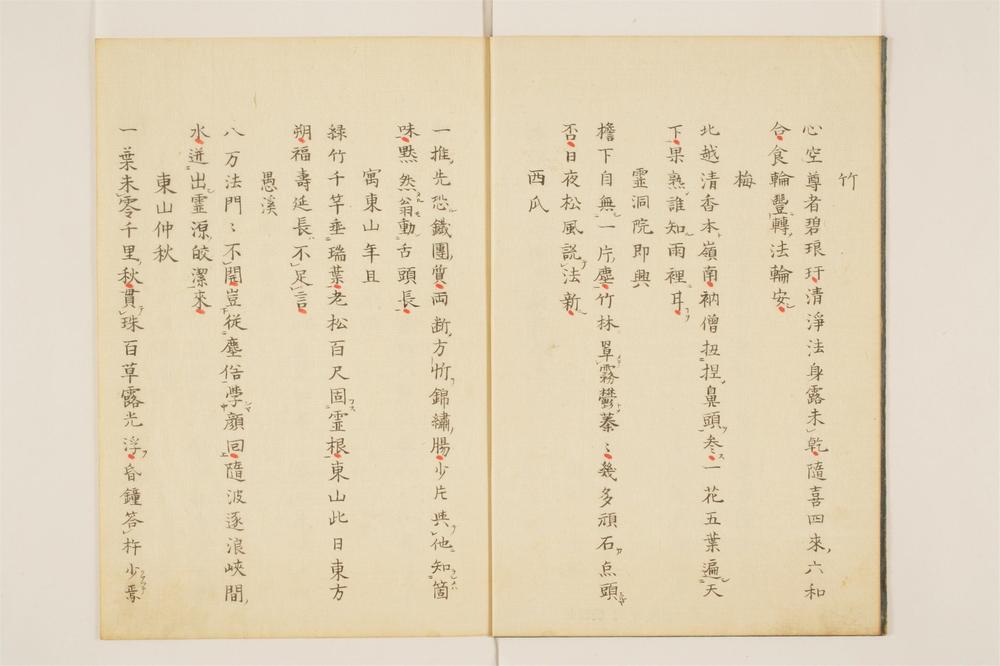 竹
心空尊者碧琅玕清淨法身露未乾隨喜四來六和
合食輪豐轉法輪安
梅
北越清香本嶺南衲僧扭捏鼻頭参一花五葉遍天
下果熟誰知雨裡耳
霊洞院即興
檐下自無一片塵竹林罩霧欝蓁〻幾多頑石点頭
否日夜松風説法新
西瓜
一推先恐鐵團質両断方忻錦繍腸少片與他知箇
味黙然翁動舌頭長
寓東山年旦
緑竹千竿垂瑞葉老松百尺固霊根東山此日東方
朔福壽延長不足言
愚溪
八万法門〻不開豈従塵俗学顔回隨波逐浪峽間
水迸出霊源皎潔來
東山仲秋
一葉未零千里秋貫珠百草露光浮昏鐘答杵少